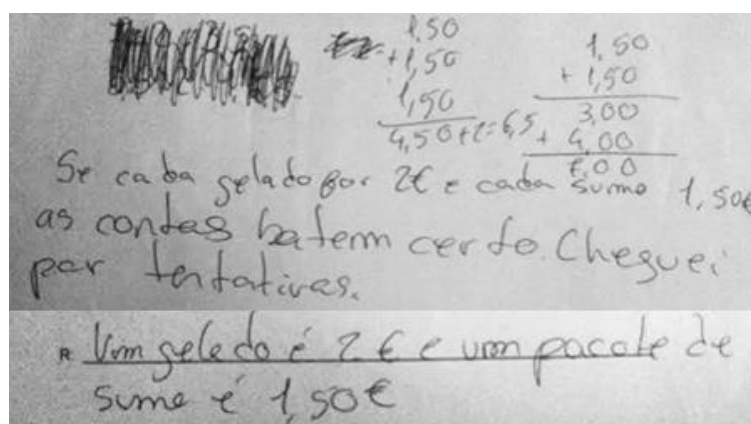 1,50
+1,50
1,50
4,50+2=6,5
1,50
+ 1,50
3,00
+ 4,00
7,00
Se caba gelado for 2€ e cada sumo 1,50€
as contas batem certo. Cheguei
por tentativas.
R. Um gelado é 2 € e um pacote de
sumo é 1,50€